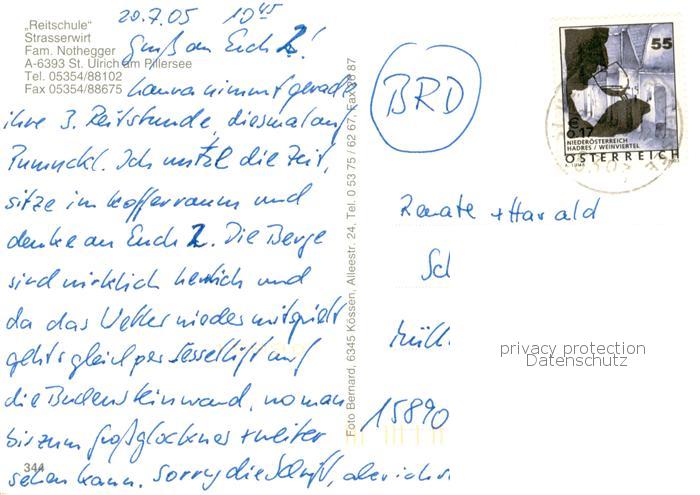 „Reitschule"
Strasserwirt
Fam. Nothegger
A-6393 St. Ulrich am Pillersee
Tel. 05354/88102
Fax 05354/88675
20.7.05 10⁴⁵
Gruß an Euch 2!
Hanna nimmt gerade
ihre 3. Reitstunde, diesmal auf
Pumuckl. Ich nutze die Zeit,
sitze im Kofferraum und
denke an Euch 2. Die Berge
sind wirklich herrlich und
da das Wetter wieder mitspielt
geht's gleich per Sessellift auf
die Buchensteinwand, wo man
bis zum Großglockner + weiter
sehen kann. Sorry die Schrift, aber ich
344
Foto Bernard, 6345 Kössen, Alleestr. 24, Tel. 0 53 75 / 62 67, Fax 66 87
BRD
55
€
0,17
NIEDERÖSTERREICH
HADRES / WEINVIERTEL
ÖSTERREICH
Renate + Harald
Sc
Müll
15890
privacy protection
Datenschutz